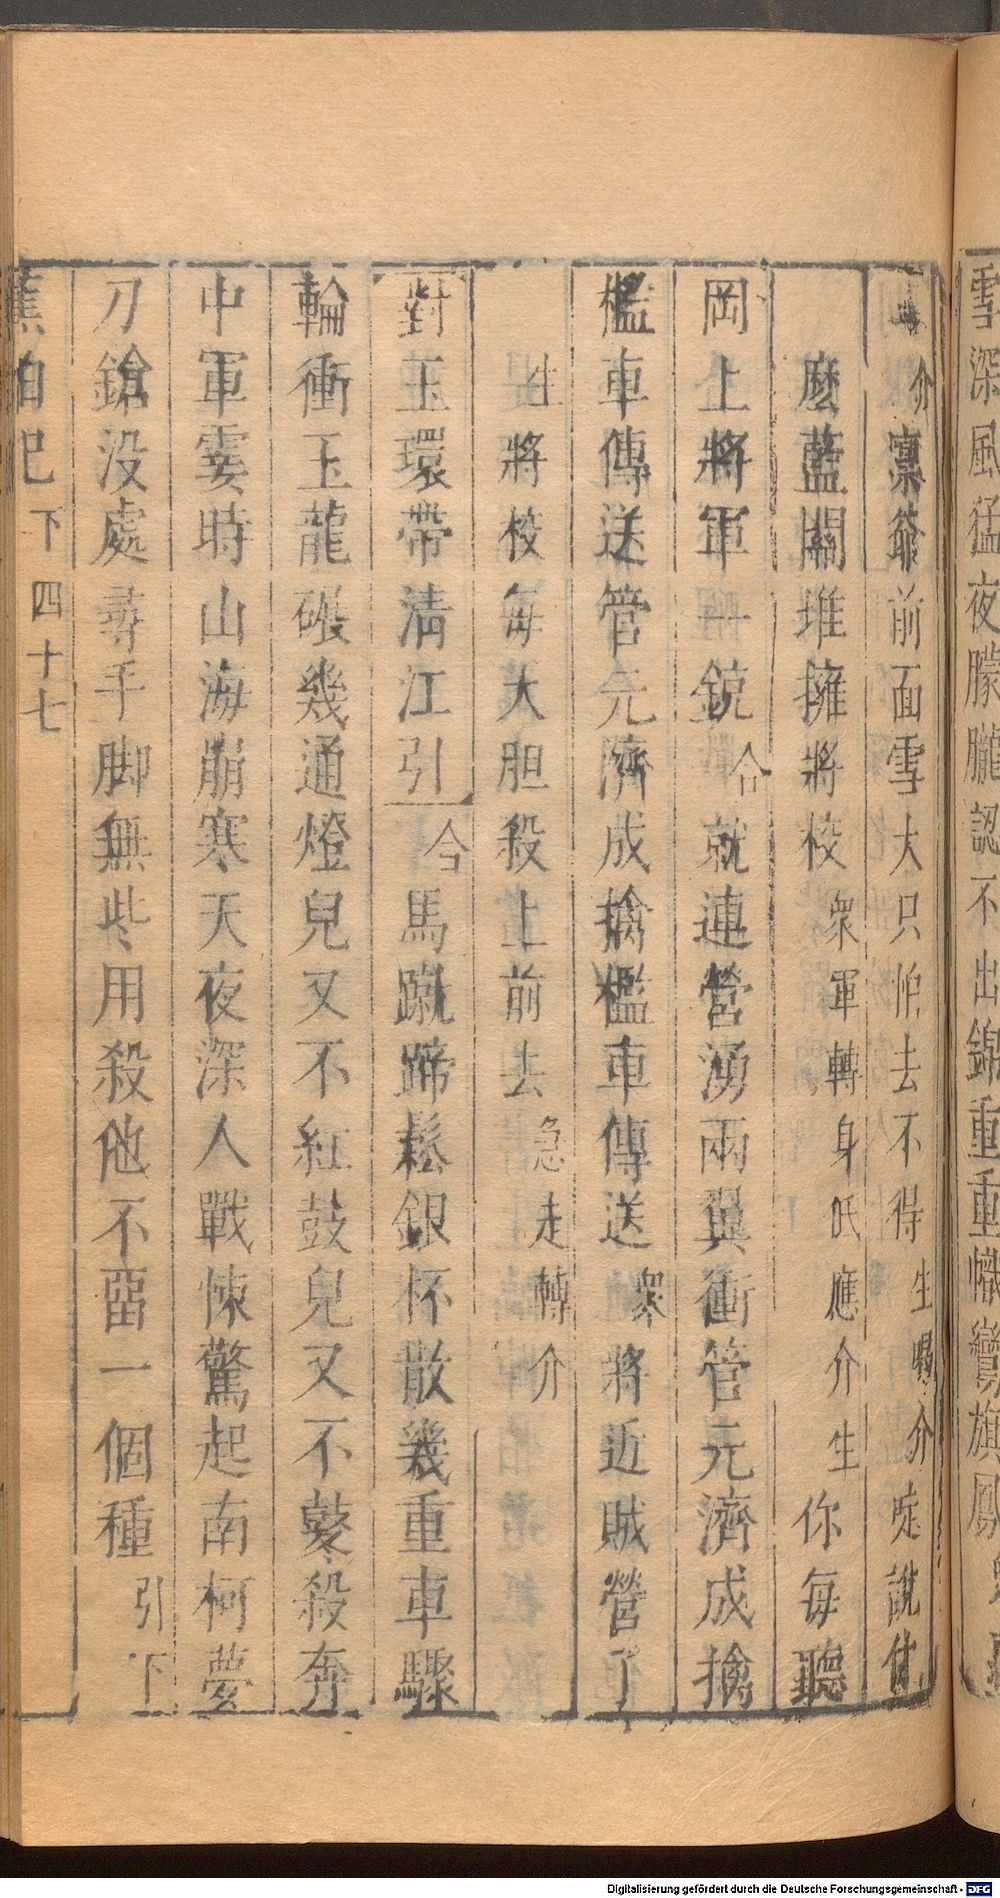 雪深風猛夜朦朧認不出錦重重幟彎旗鳳
介 凛爺前面雪大只怕去不得 生喝介 唗說什
麽藍關堆擁將校 衆軍轉身氐應介生 你每聽
岡上將軍一銃 合 就連營湧兩翼衝管元濟成擒
檻車傳送管元濟成擒檻車傳送 衆 將近賊營了
生 將校每大胆殺上前去 急走轉介
對玉環帶清江引 合 馬蹴蹄鬆銀杯散幾重車驟
輪衝玉龍碾幾通燈兒又不紅鼓兒又不鼕殺奔
中軍霎時山海崩寒天夜深人戰悚驚起南柯夢
刀鎗没處尋手脚無些用殺他不畱一個種 引下
蕉帕記 下 四十七
Digitalisierung gefördert durch die Deutsche Forschungsgemeinschaft - DFG